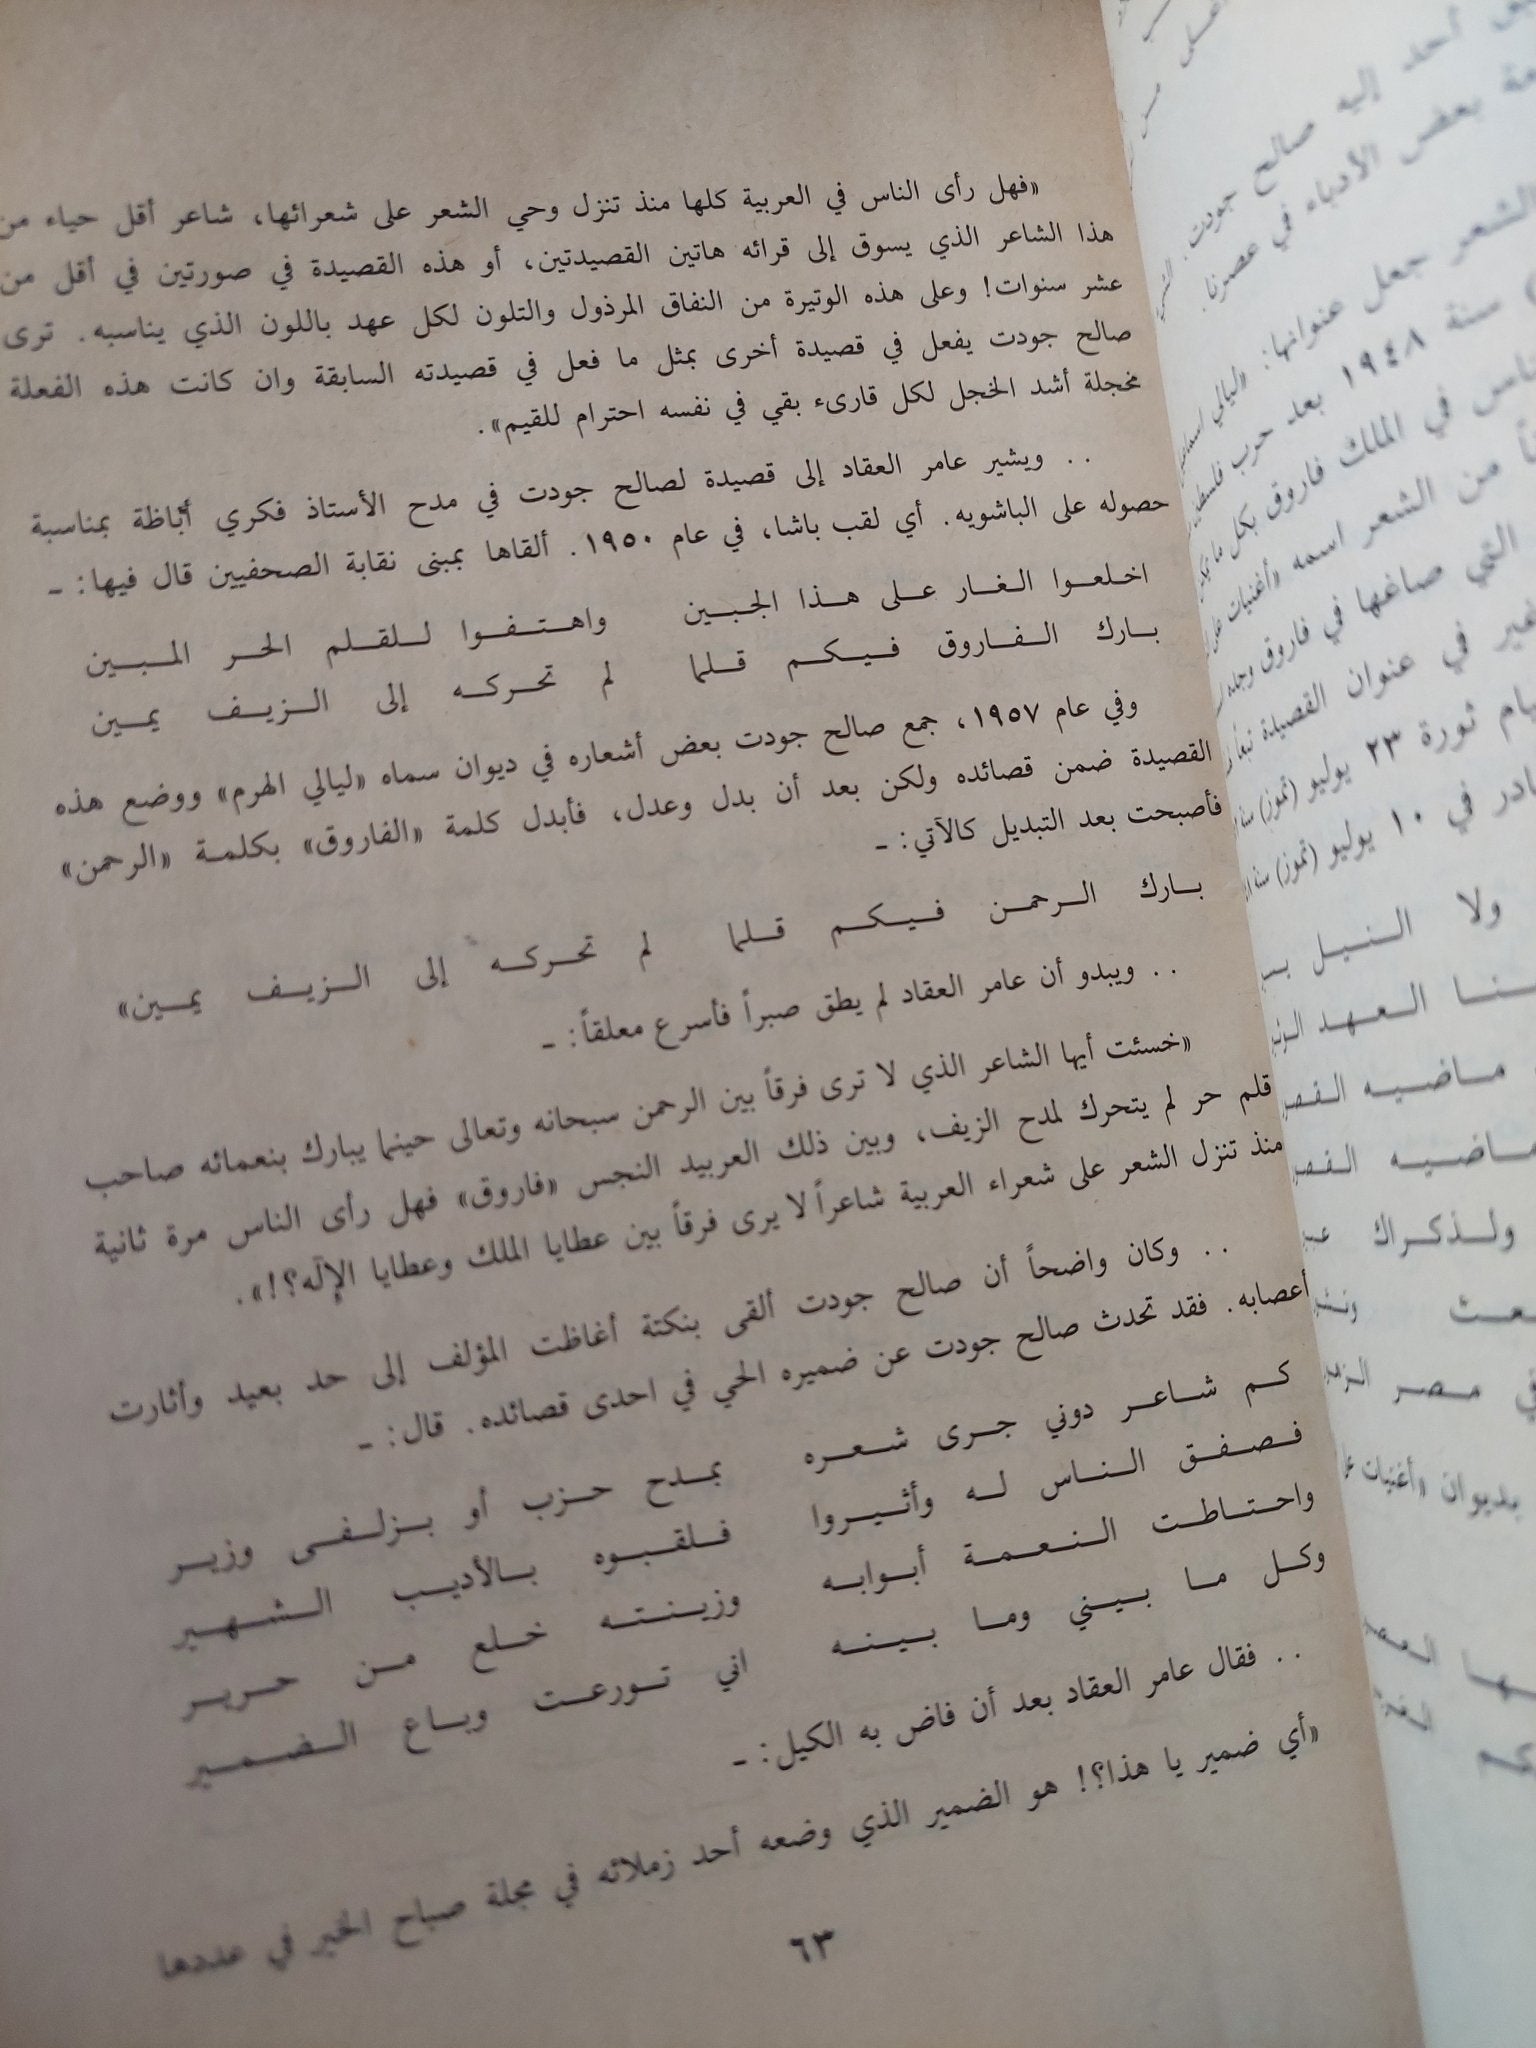 «فهل رأى الناس في العربية كلها منذ تنزل وحي الشعر على شعرائها، شاعر أقل حياء من
هذا الشاعر الذي يسوق إلى قرائه هاتين القصيدتين، أو هذه القصيدة في صورتين في أقل من
عشر سنوات! وعلى هذه الوتيرة من النفاق المرذول والتلون لكل عهد باللون الذي يناسبه. ترى
صالح جودت يفعل في قصيدة أخرى بمثل ما فعل في قصيدته السابقة وان كانت هذه الفعلة
مخجلة أشد الخجل لكل قارىء بقي في نفسه احترام للقيم».
.. ويشير عامر العقاد إلى قصيدة لصالح جودت في مدح الأستاذ فكري أباظة بمناسبة
حصوله على الباشويه. أي لقب باشا، في عام ١٩٥٠. ألقاها بمبنى نقابة الصحفيين قال فيها: -
اخلعوا الغار على هذا الجبين واهتفوا للقلم الحر المبين
بارك الفاروق فيكم قلما لم تحركه إلى الزيف يمين
وفي عام ١٩٥٧، جمع صالح جودت بعض أشعاره في ديوان سماه «ليالي الهرم» ووضع هذه
القصيدة ضمن قصائده ولكن بعد أن بدل وعدل، فأبدل كلمة «الفاروق» بكلمة «الرحمن»
فأصبحت بعد التبديل كالآتي: -
بارك الرحمن فيكم قلما لم تحركه إلى الزيف يمين»
.. ويبدو أن عامر العقاد لم يطق صبراً فأسرع معلقاً: -
«خسئت أيها الشاعر الذي لا ترى فرقاً بين الرحمن سبحانه وتعالى حينما يبارك بنعمائه صاحب
قلم حر لم يتحرك لمدح الزيف، وبين ذلك العربيد النجس «فاروق» فهل رأى الناس مرة ثانية
منذ تنزل الشعر على شعراء العربية شاعراً لا يرى فرقاً بين عطايا الملك وعطايا الإله؟!».
.. وكان واضحاً أن صالح جودت ألقى بنكتة أغاظت المؤلف إلى حد بعيد وأثارت
أعصابه. فقد تحدث صالح جودت عن ضميره الحي في احدى قصائده. قال: -
كم شاعر دوني جرى شعره بمدح حزب أو بزلفى وزير
فصفق الناس له وأثيروا فلقبوه بالأديب الشهير
واحتاطت النعمة أبوابه وزينته خلع من حرير
وكل ما بيني وما بينه اني تورعت وباع الضمير
.. فقال عامر العقاد بعد أن فاض به الكيل: -
«أي ضمير يا هذا؟! هو الضمير الذي وضعه أحد زملائه في مجلة صباح الخير في عددها
٦٣
أحد إليه صالح جودت.
بعض الأدباء في عصرنا.
الشعر جعل عنوانها: «ليالي
سنة ١٩٤٨ بعد حرب
في الملك فاروق بكل ما
من الشعر اسمه «أغنيات على
التي صاغها في فاروق وجله
في عنوان القصيدة تبعاً
ثورة ٢٣ يوليو (تموز) سنة
في ١٠ يوليو (تموز) سنة
ولا النيل
العهد
ماضيه
ماضيه
ولذكراك
في مصر
بديوان «أغنيات